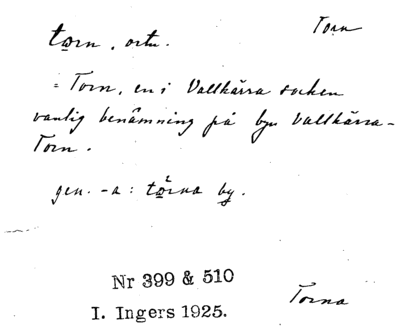 to̲rn, ortn. Torn
= Torn, en i Vallkärra socken
vanlig benämning på byn Vallkärra-
Torn.
gen. -a: tö̲rna by.
Nr 399 & 510
I. Ingers 1925. Torna